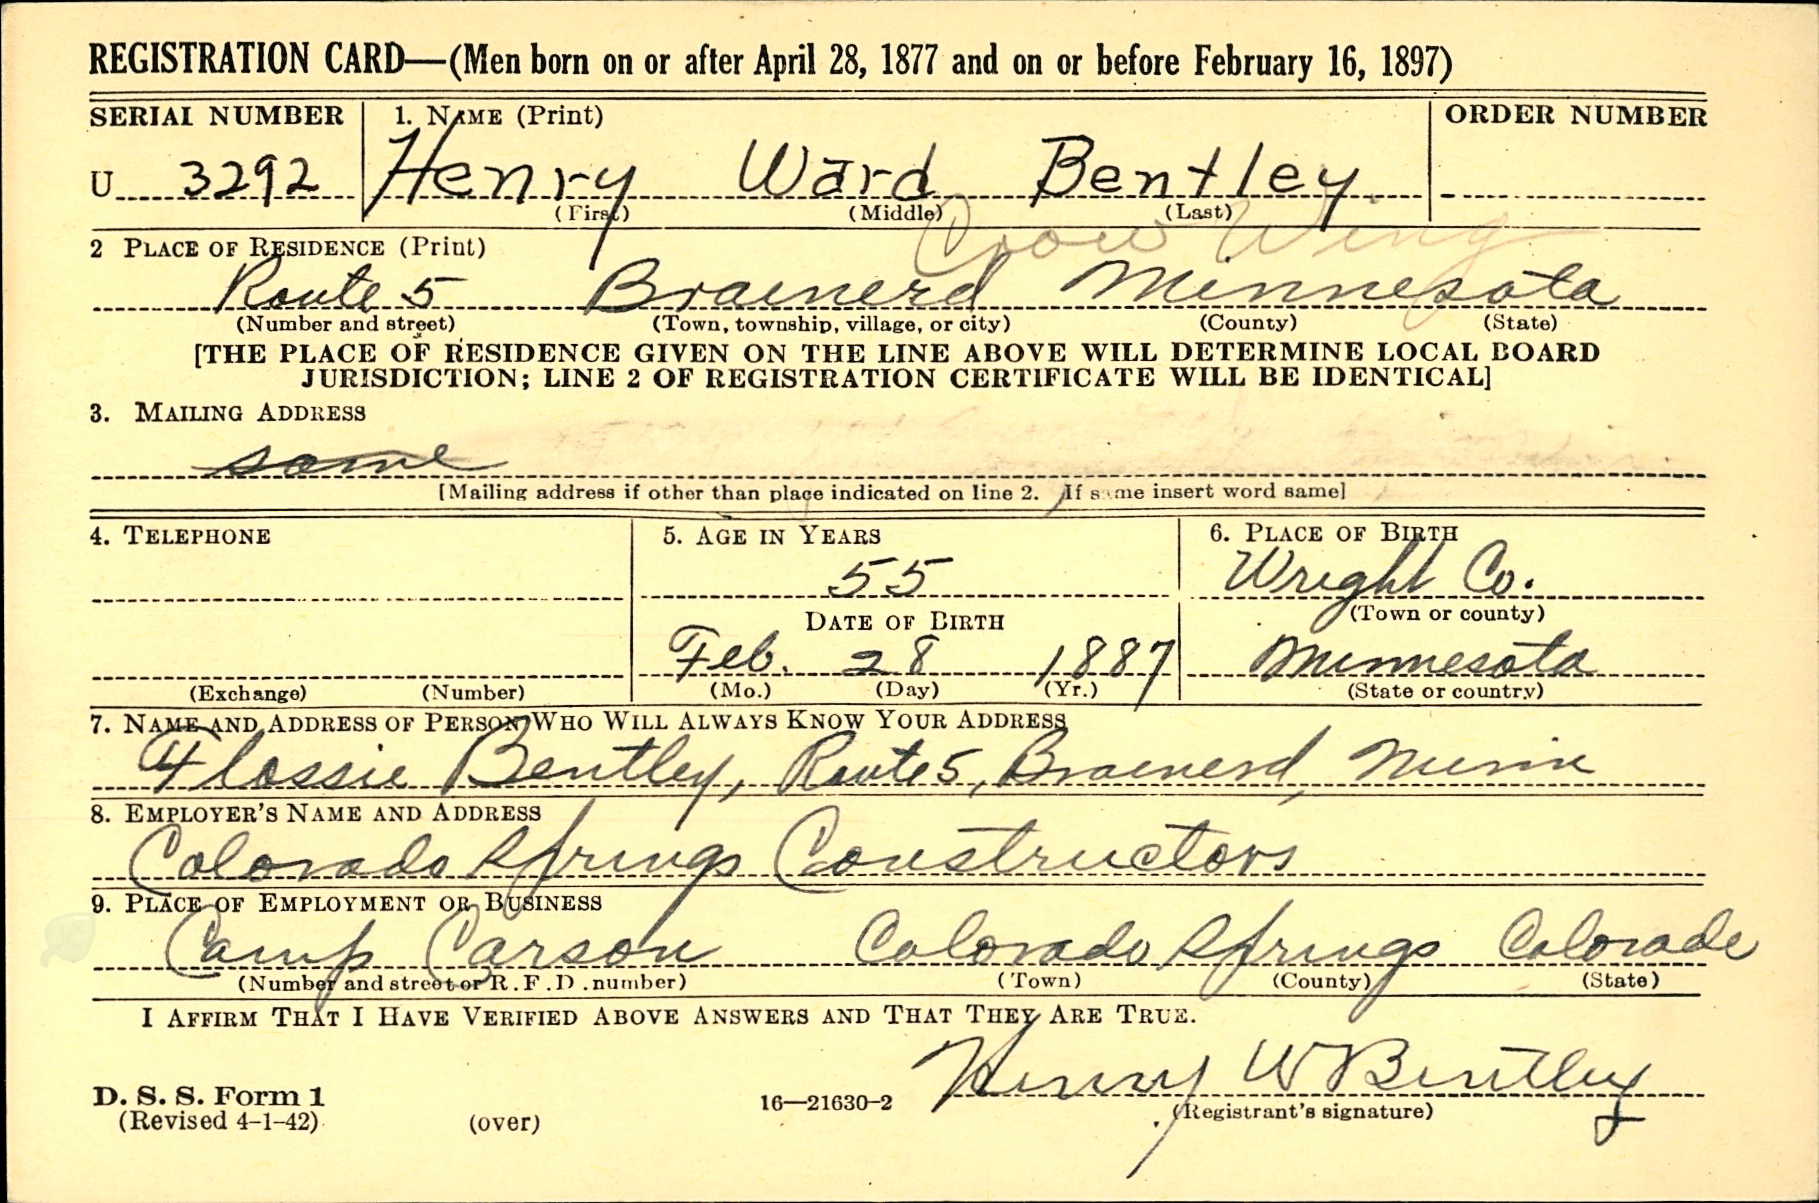 REGISTRATION CARD—(Men born on or after April 28, 1877 and on or before February 16, 1897)
SERIAL NUMBER 1. NAME (Print) ORDER NUMBER
U 3292 Henry Ward Bentley
(First) (Middle) (Last)
Crow Wing
2 PLACE OF RESIDENCE (Print)
Route 5 Brainerd Minnesota
(Number and street) (Town, township, village, or city) (County) (State)
[THE PLACE OF RESIDENCE GIVEN ON THE LINE ABOVE WILL DETERMINE LOCAL BOARD
JURISDICTION; LINE 2 OF REGISTRATION CERTIFICATE WILL BE IDENTICAL]
3. MAILING ADDRESS
same
[Mailing address if other than place indicated on line 2. If same insert word same]
4. TELEPHONE 5. AGE IN YEARS 6. PLACE OF BIRTH
55 Wright Co.
DATE OF BIRTH (Town or county)
Feb. 28 1887 Minnesota
(Exchange) (Number) (Mo.) (Day) (Yr.) (State or country)
7. NAME AND ADDRESS OF PERSON WHO WILL ALWAYS KNOW YOUR ADDRESS
Flossie Bentley, Route 5, Brainerd, Minn
8. EMPLOYER'S NAME AND ADDRESS
Colorado Springs Constructors
9. PLACE OF EMPLOYMENT OR BUSINESS
Camp Carson Colorado Springs Colorado
(Number and street or R. F. D. number) (Town) (County) (State)
I AFFIRM THAT I HAVE VERIFIED ABOVE ANSWERS AND THAT THEY ARE TRUE.
Henry W Bentley
D. S. S. Form 1
(Revised 4-1-42) (over) 16—21630-2 (Registrant's signature)